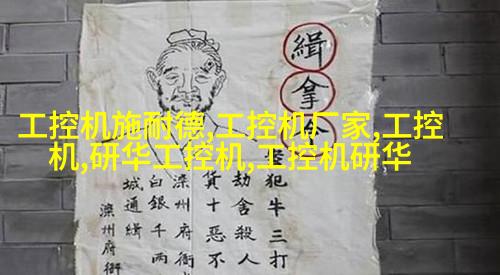 工控机施耐德,工控机厂家,工控
机,研华工控机,工控机研华
緝拿
犯牛三打
劫舍殺人
貨十惡不
滦州府衙
白銀千两
城通緝
滦州府衙